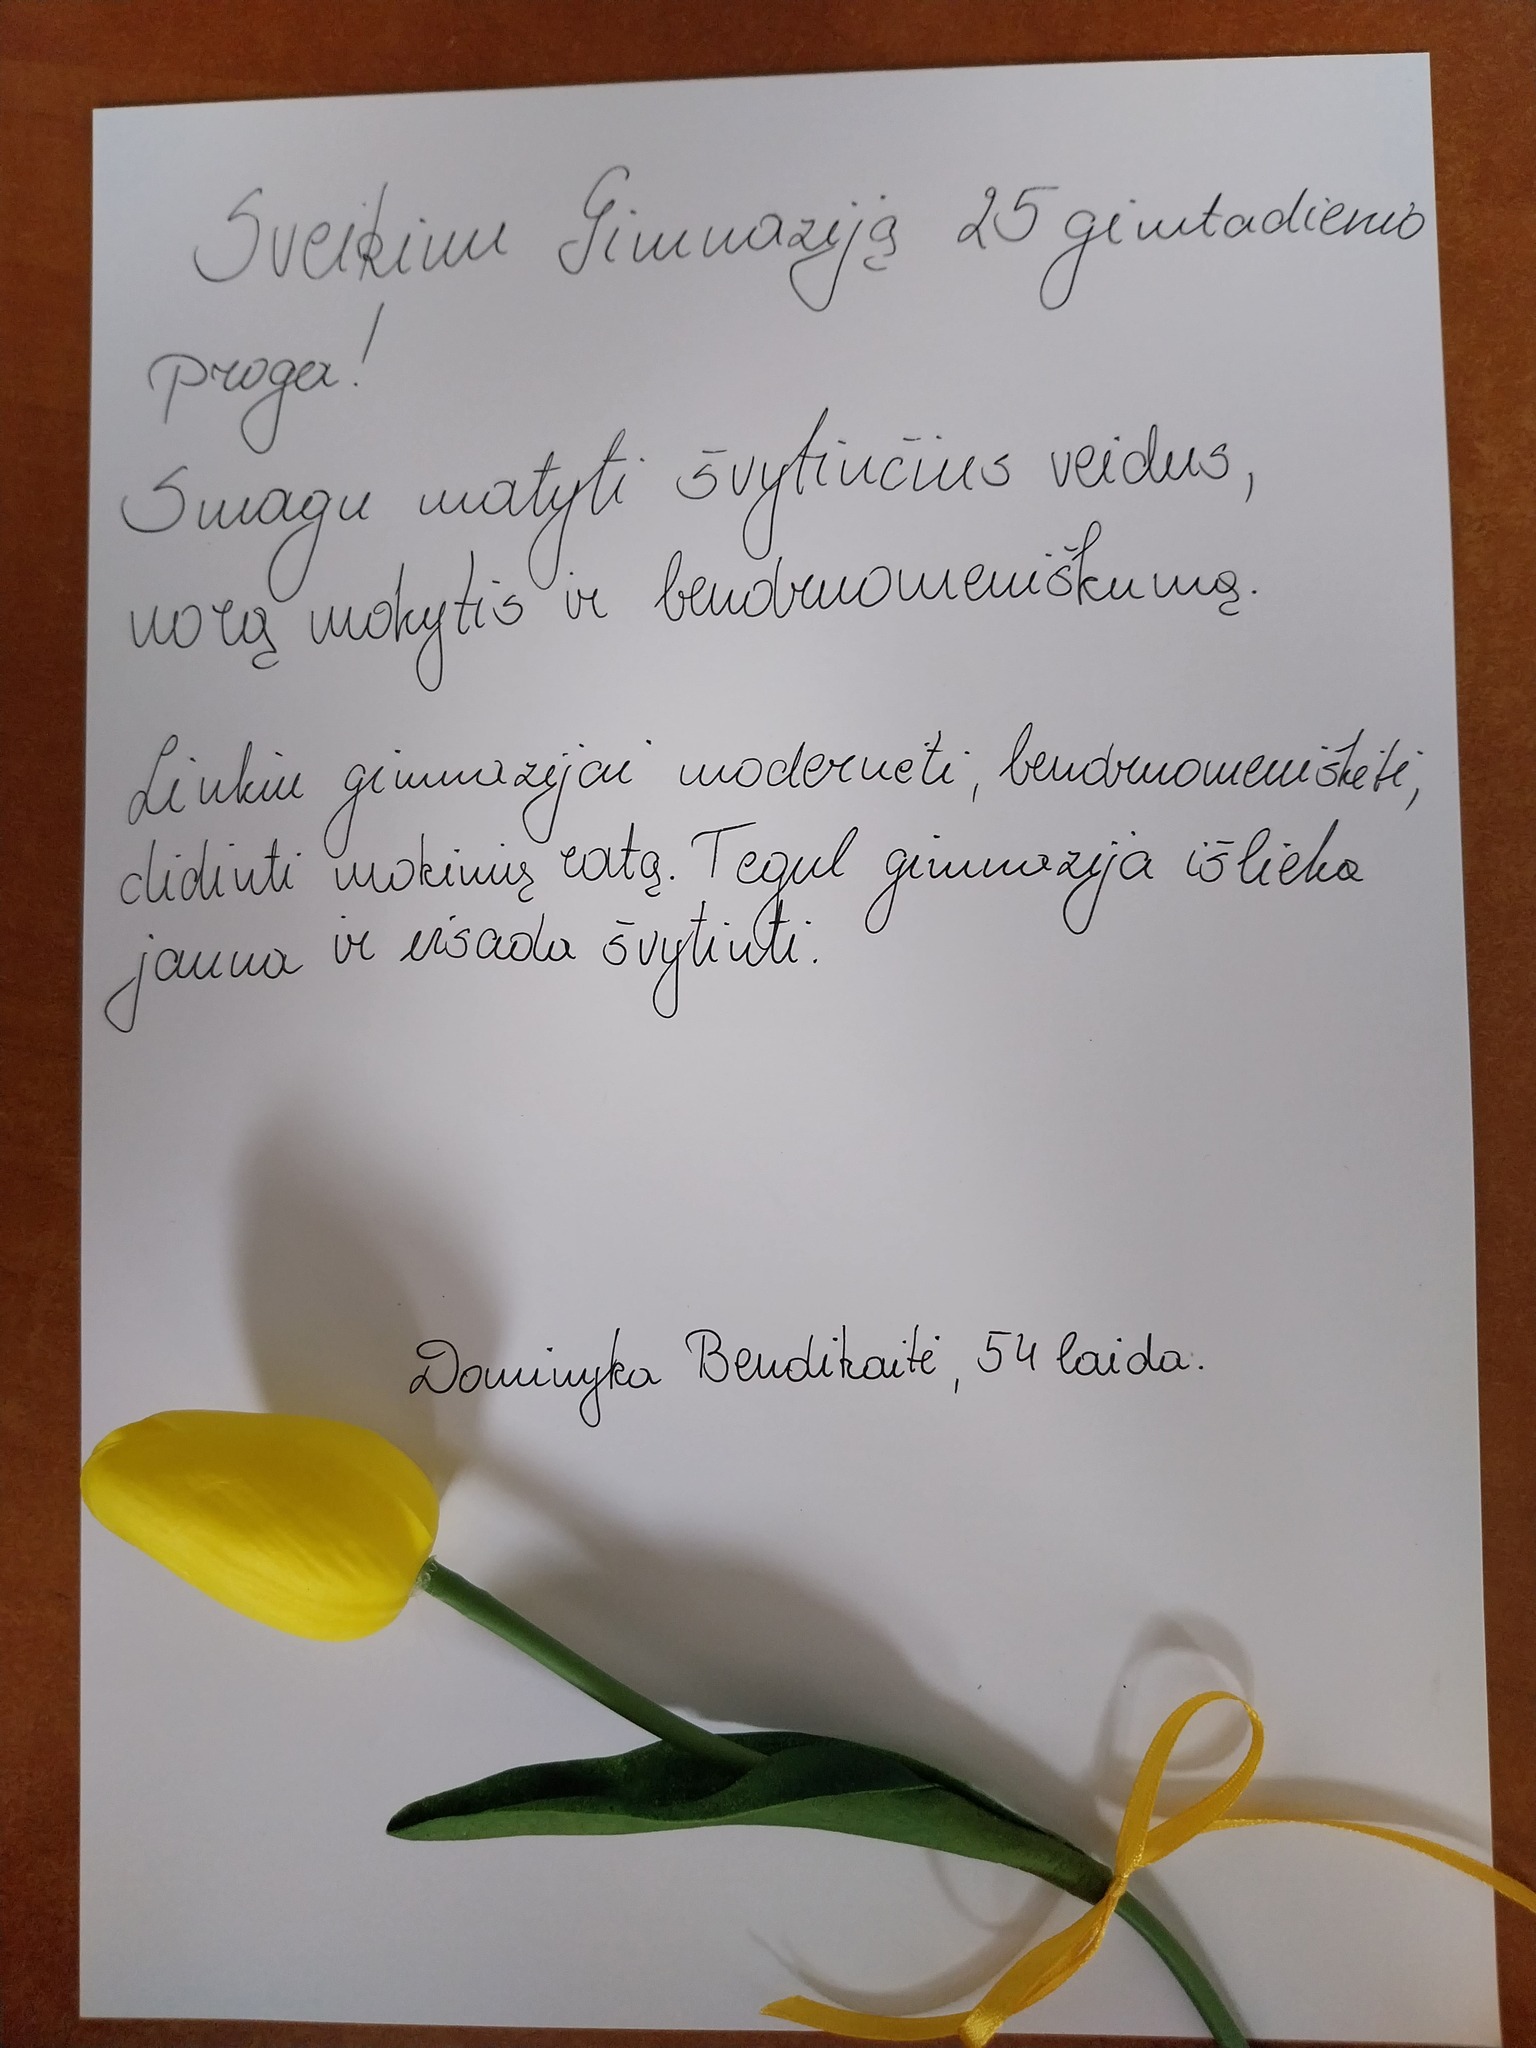 Sveikinu Gimnaziją 25 gimtadienio
proga!
Smagu matyti švytinčius veidus,
norą mokytis ir bendruomeniškumą.
Linkiu gimnazijai modernėti, bendruomeniškėti,
didinti mokinių ratą. Tegul gimnazija išlieka
jauna ir visada švytinti.
Dominyka Bendikaitė, 54 laida.